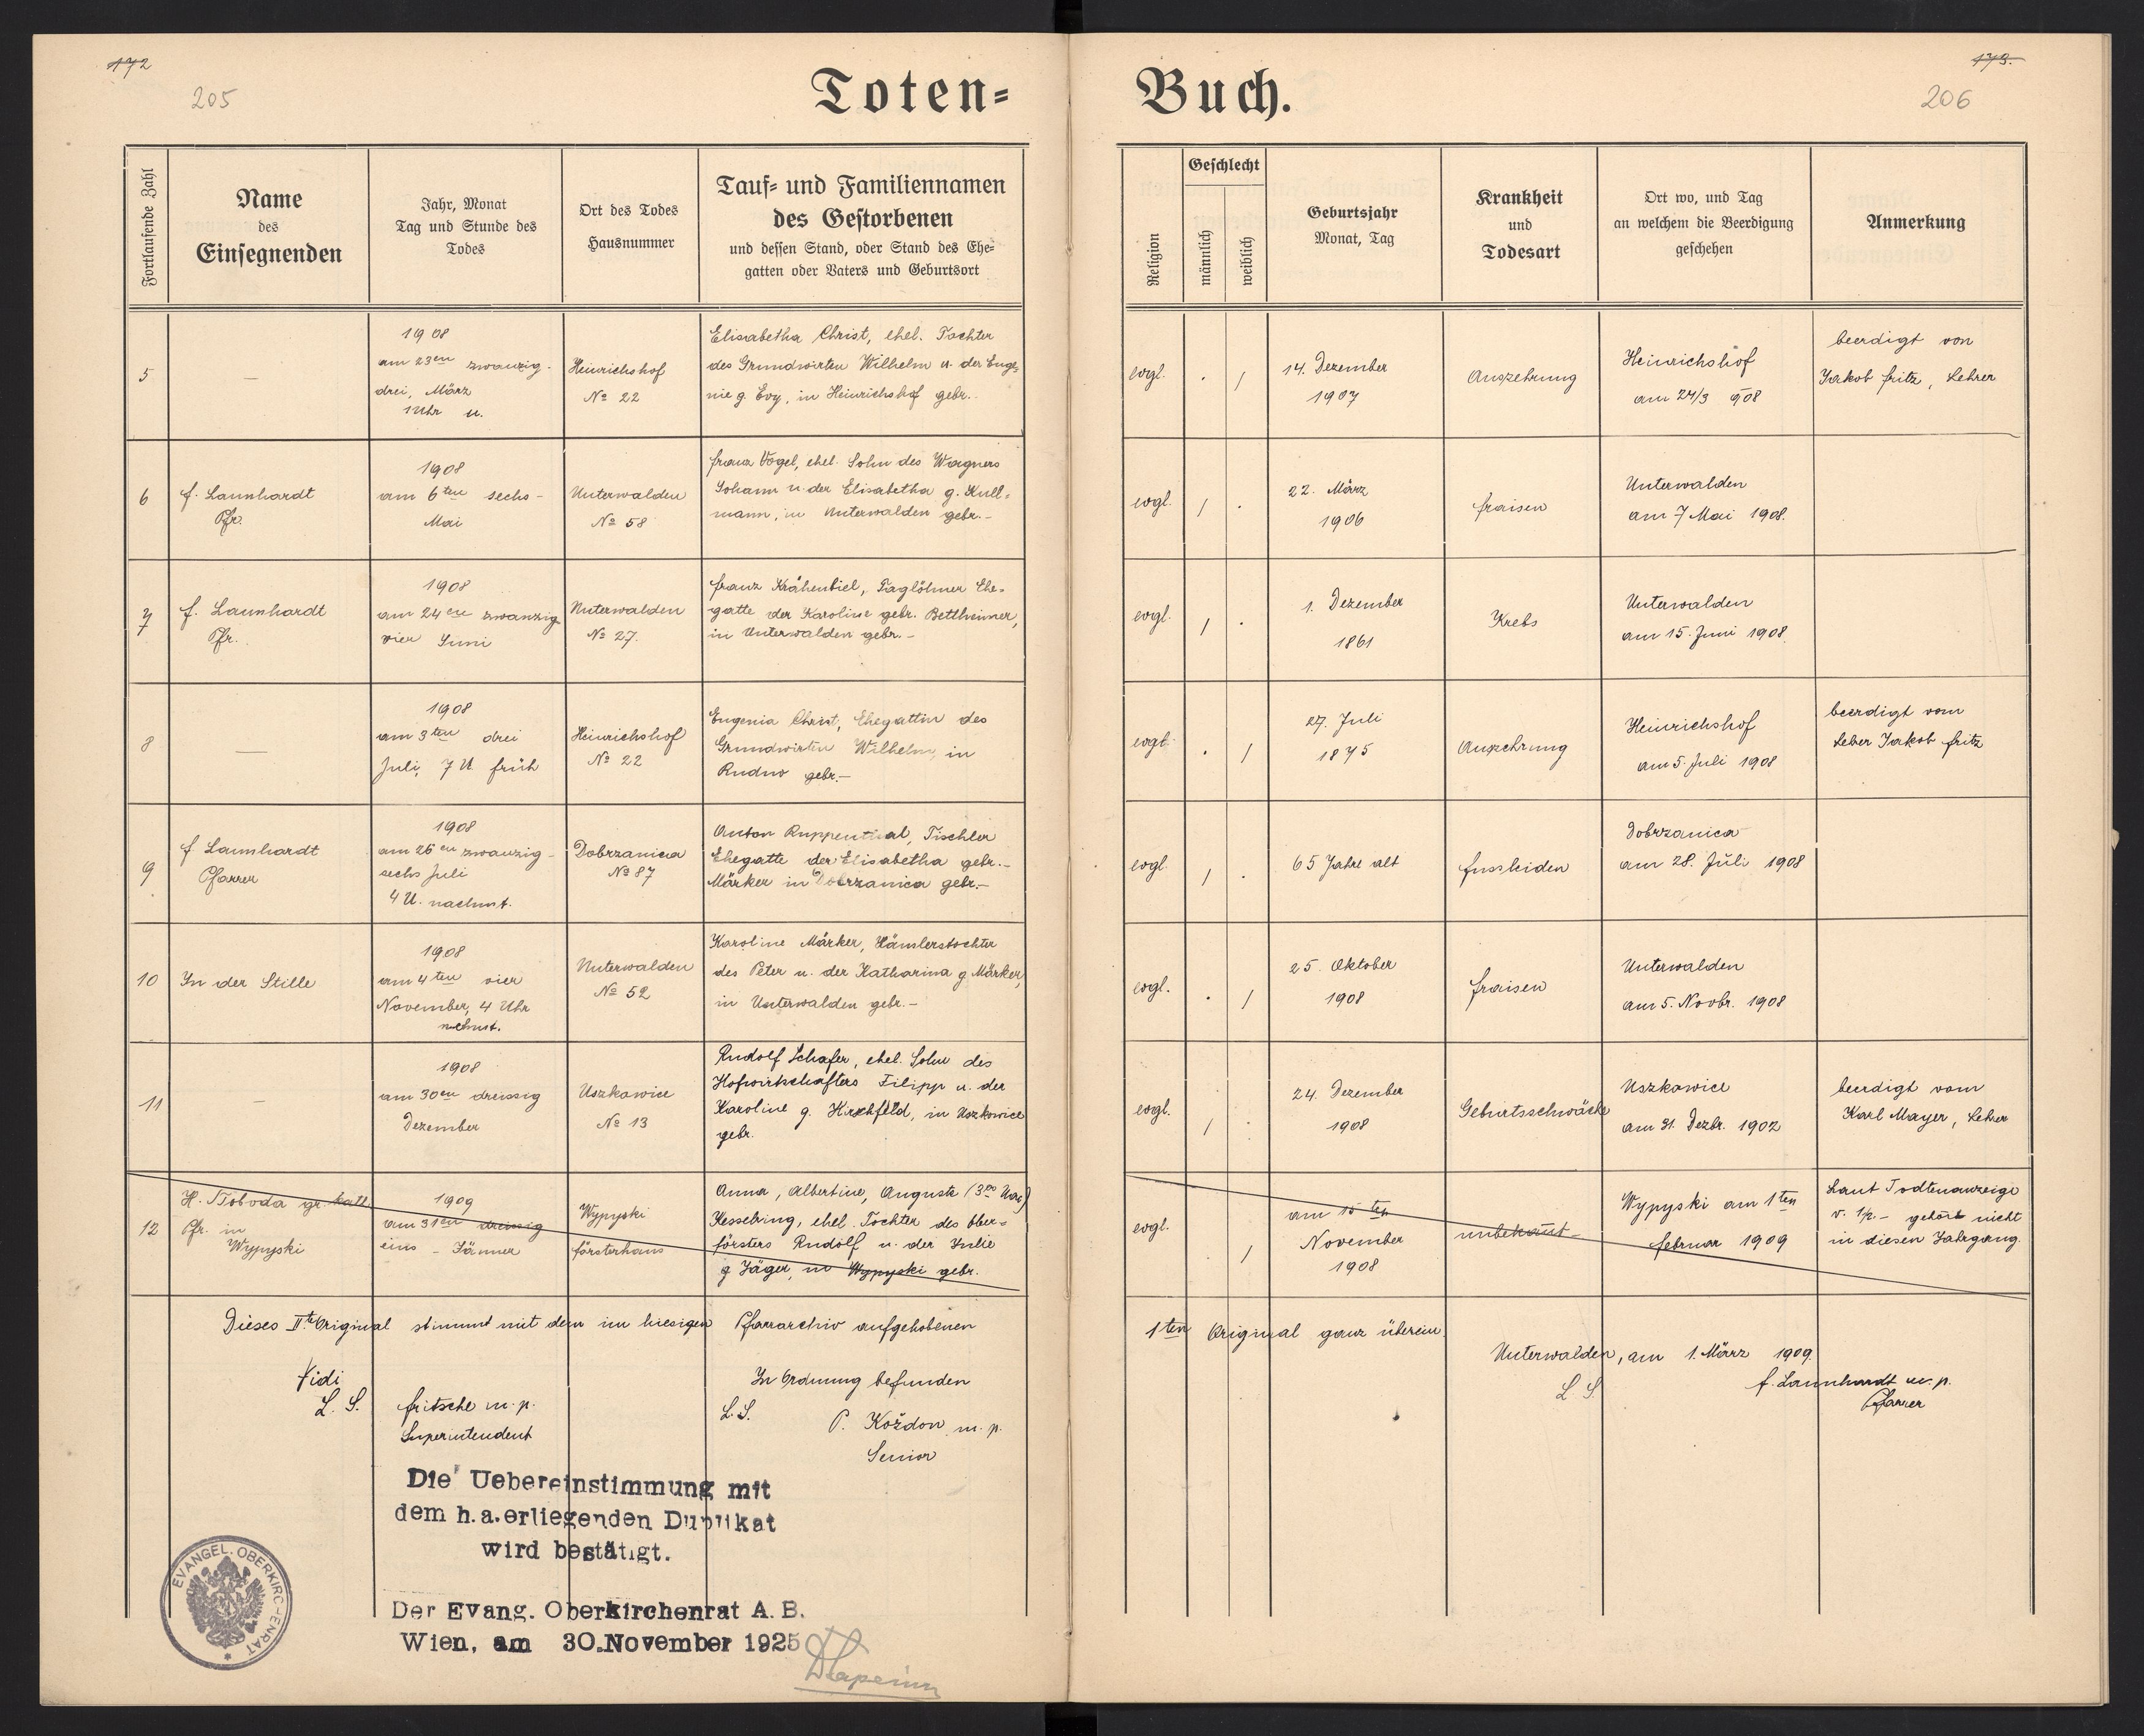 172
205
Toten=
Buch.
173.
206
Fortlaufende Zahl
Name
des
Einsegnenden
Jahr, Monat
Tag und Stunde des
Todes
Ort des Todes
Hausnummer
Tauf= und Familiennamen
des Gestorbenen
und dessen Stand, oder Stand des Ehe=
gatten oder Vaters und Geburtsort
Religion
Geschlecht
männlich
weiblich
Geburtsjahr
Monat, Tag
Krankheit
und
Todesart
Ort wo, und Tag
an welchem die Beerdigung
geschehen
Anmerkung
5
—
1908
am 23en zwanzig-
drei, März
1 Uhr u.
Heinrichshof
No 22
Elisabetha Christ, ehel. Tochter
des Grundwirten Wilhelm u. der Euge=
nie g. Evy, in Heinrichshof gebr.-
evgl.
. /
14. Dezember
1907
Auszehrung
Heinrichshof
am 24/3 908
beerdigt von
Jakob Fritz, Lehrer
6
F. Launhardt
Pfr.
1908
am 6ten sechs-
Mai
Unterwalden
No 58
Franz Vogel, ehel. Sohn des Wagners
Johann u. der Elisabetha g. Kull=
mann, in Unterwalden gebr.-
evgl.
/ .
22. März
1906
Fraisen
Unterwalden
am 7 Mai 1908.
7
F. Launhardt
Pfr.
1908
am 24en zwanzig
vier Juni
Unterwalden
No 27.
Franz Krähenbiel, Taglöhner Ehe=
gatte der Karoline gebr.
in Unterwalden gebr.-
evgl.
/ .
1. Dezember
1861
Krebs
Unterwalden
am 15. Juni 1908.
8
—
1908
am 3ten drei
Juli, 7 U. früh
Heinrichshof
No 22
Eugenia Christ, Ehegattin des
Grundwirten Wilhelm, in
Rudno gebr.-
evgl.
. /
27. Juli
1875
Auszehrung
Heinrichshof
am 5. Juli 1908
beerdigt vom
Leher Jakob Fritz
9
F Launhardt
Pfarrer
1908
am 26en zwanzig-
sechs Juli
4 U. nachmt.
Dobrzanica
No 87
Anton Ruppenthal, Tischler
Ehegatte der Elisabetha gebr.-
Märker in Dobrzanica gebr.-
evgl.
/ .
65 Jahre alt
Fussleiden
Dobrzanica
am 28. Juli 1908
10
In der Stille
1908
am 4ten vier
November, 4 Uhr
nchmt.
Unterwalden
No 52
Karoline Märker, Hämlerstochter
des Peter u. der Katharina g Märker,
in Unterwalden gebr.-
evgl.
. /
25. Oktober
1908
Fraisen
Unterwalden
am 5. Novbr. 1908
11
—
1908
am 30en dreissig
Dezember
Uszkowice
No 13
Rudolf Schafer, ehel. Sohn des
Hofwirtschafters Filipp u. der
Karoline g. Hirschfeld, in Uszkowice
gebr.
evgl.
/ .
24. Dezember
1908
Geburtsschwäche
Uszkowice
am 31. Dezbr. 1902
beerdigt vom
Karl Mayer, Lehrer
12
H. Sloboda gr. kath.
Pfr. in
Wypyski
1909
am 31en dreissig
eins - Jänner
Wypyski
Försterhaus
Anna, Albertine, Auguste
Kesselring, ehel. Tochter des Ober=
försters Rudolf u. der Julie
g Jäger, in Wypyski gebr.
evgl.
. /
am 15ten
November
1908
unbekannt-
Wypyski am 1ten
Februar 1909
Laut Todtenanzeige
v. 1/2.- gehört nicht
in diesen Jahrgang.
Dieses IIte Original stimmt mit dem im hiesigen Pfarrarchiv aufgehobenen
1ten Original ganz überein.
Unterwalden, am 1. März 1909.
L. S.
F. Launhardt m. p.
Pfarrer
Vidi
L. S.
Fritsche m. p.
Superintendent
In Ordnung befunden
L. S.
P. Koždon m. p.
Senior
Die Uebereinstimmung mit
dem h.a.erliegenden Duplikat
wird bestätigt.
Der Evang. Oberkirchenrat A. B.
Wien, am 30.November 1925
EVANGEL. OBERKIRCHENRAT